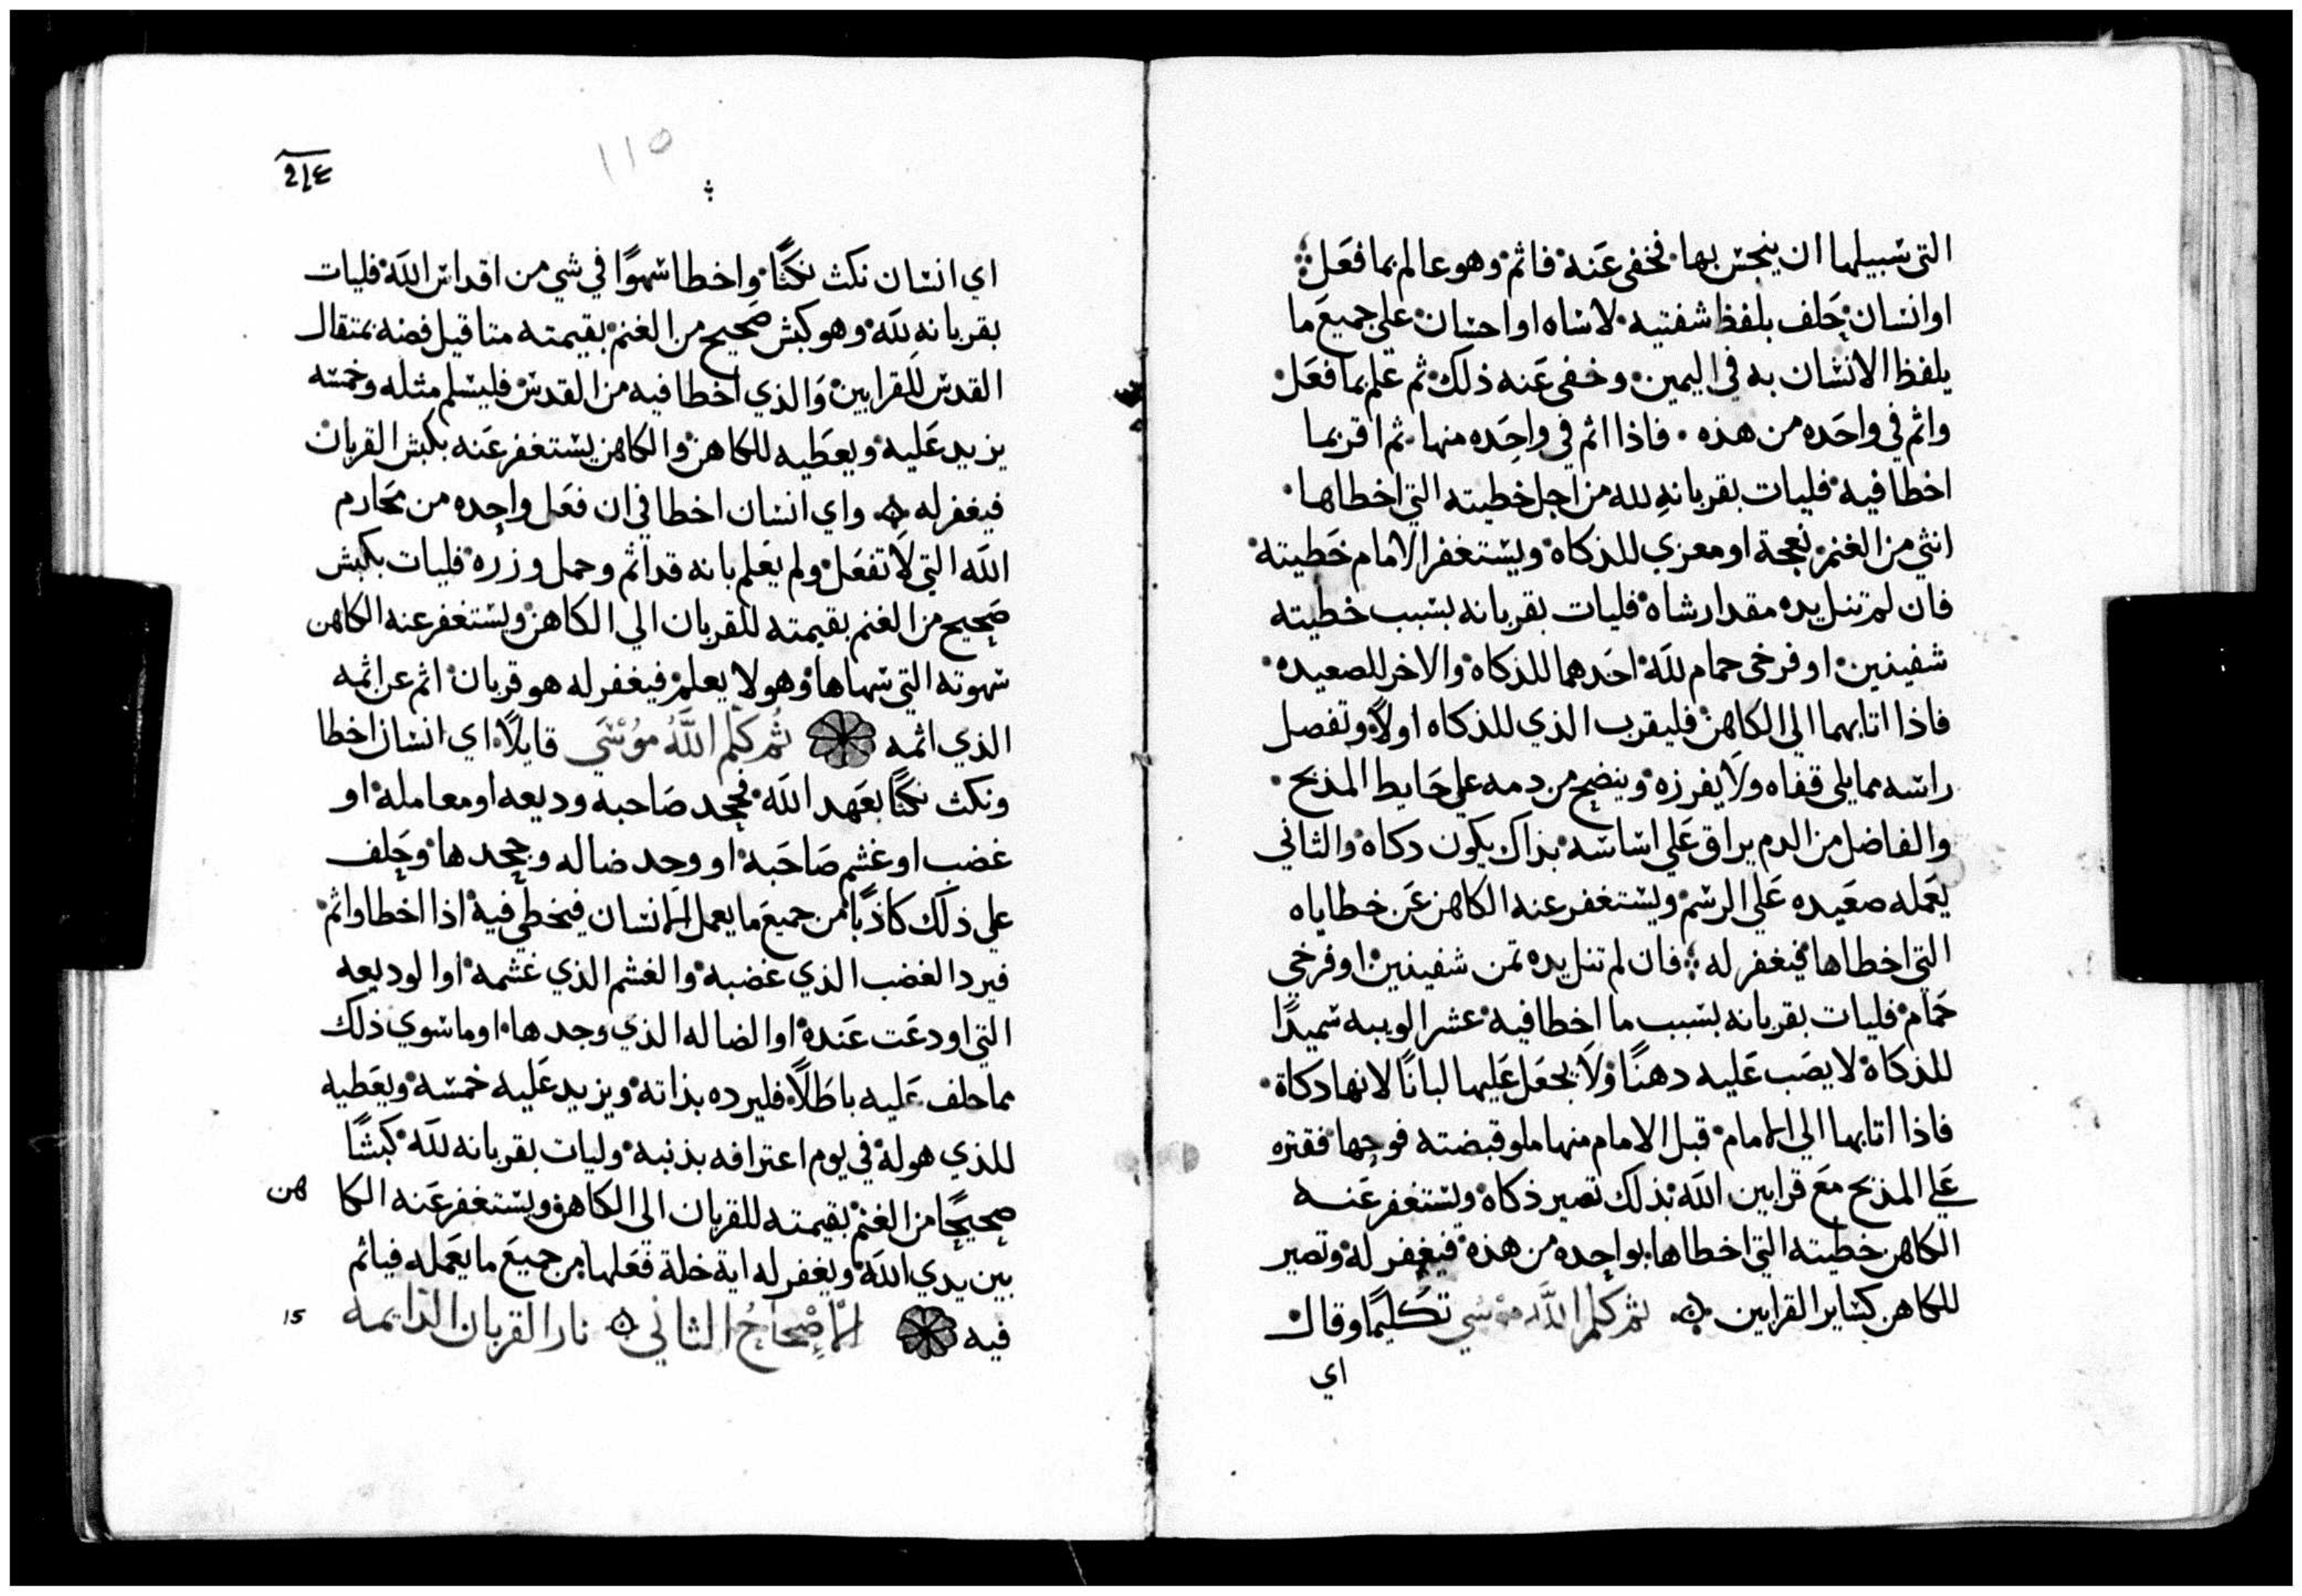 التي سبيلها ان ينجس بها فخفى عنه فاثم وهو عالم بما فعل
او انسان حلف بلفظ شفتيه لاساه او احسان على جميع ما
يلفظ الانسان به في اليمين وخفى عنه ذلك ثم علم بما فعل
واثم في واحده من هذه فاذا اثم في واحده منها ثم اقر بما
اخطا فيه فليات بقربانه لله من اجل خطيته التي اخطاها
انثي من الغنم نعجة او معزي للذكاه ويستغفر الامام خطيته
فان لم تنل يده مقدار شاه فليات بقربانه بسبب خطيته
شفينين او فرخي حمام لله احدهما للذكاه والاخر للصعيده
فاذا اتا بهما الي الكاهن فليقرب الذي للذكاه اولاً وتفصل
راسه مما يلي قفاه ولا يفرزه وينضح من دمه علي حايط المذبح
والفاضل من الدم يراق علي اساسه بذاك يكون دكاه والثاني
يعمله صعيده علي الرسم ويستغفر عنه الكاهن عن خطاياه
التي اخطاها فيغفر له فان لم تنل يده ثمن شفينين او فرخي
حمام فليات بقربانه بسبب ما اخطا فيه عشر الويبه سميدًا
للذكاة لا يصب عليه دهنًا ولا يجعل عليها لبانًا لانها دكاة
فاذا اتا بها الي الامام قبل الامام منها ملو قبضته فوجها فقتره
علي المذبح مع قرابين الله بذلك تصير ذكاة ويستغفر عنه
الكاهن خطيته التي اخطاها بواحده من هذه فيغفر له وتصير
للكاهن كساير القرابين ثم كلم الله موسي تكليمًا وقال
اي
٢١٤
١١٥
اي انسان نكث نكثًا واخطا سهوًا في شي من اقداس الله فليات
بقربانه لله وهو كبش صحيح من الغنم بقيمته مثاقيل فضه بمثقال
القدس للقرابين والذي اخطا فيه من القدس فليسلم مثله وخمسه
يزيد عليه ويعطيه للكاهن والكاهن يستغفر عنه بكبش القربان
فيغفر له واي انسان اخطا في ان فعل واحده من محارم
الله التي لا تفعل ولم يعلم بانه قد اثم وحمل وزره فليات بكبش
صحيح من الغنم بقيمته للقربان الي الكاهن ويستغفر عنه الكاهن
سهوته التي سهاها وهو لا يعلم فيغفر له هو قربان اثم عن اثمه
الذي اثمه ثم كلم الله موسي قايلاً اي انسان اخطا
ونكث نكثًا بعهد الله فجحد صاحبه وديعه او معامله او
غضب او غشم صاحبه او وجد ضاله وجحدها وحلف
علي ذلك كاذبًا من جميع ما يعمل الانسان فيخطي فيه اذا اخطا واثم
فيرد الغضب الذي غضبه والغشم الذي غشمه او الوديعه
التي اودعت عنده او الضاله الذي وجدها او ما سوي ذلك
مما حلف عليه باطلاً فليرده بذاته ويزيد عليه خمسه ويعطيه
للذي هو له في يوم اعترافه بذنبه وليات بقربانه لله كبشًا
صحيحًا من الغنم بقيمته للقربان الي الكاهن ويستغفر عنه الكا هن
بين يدي الله ويغفر له اية خلة فعلها من جميع ما يعمله فياثم
فيه الاصحاح الثاني نار القربان الدايمه
١٥